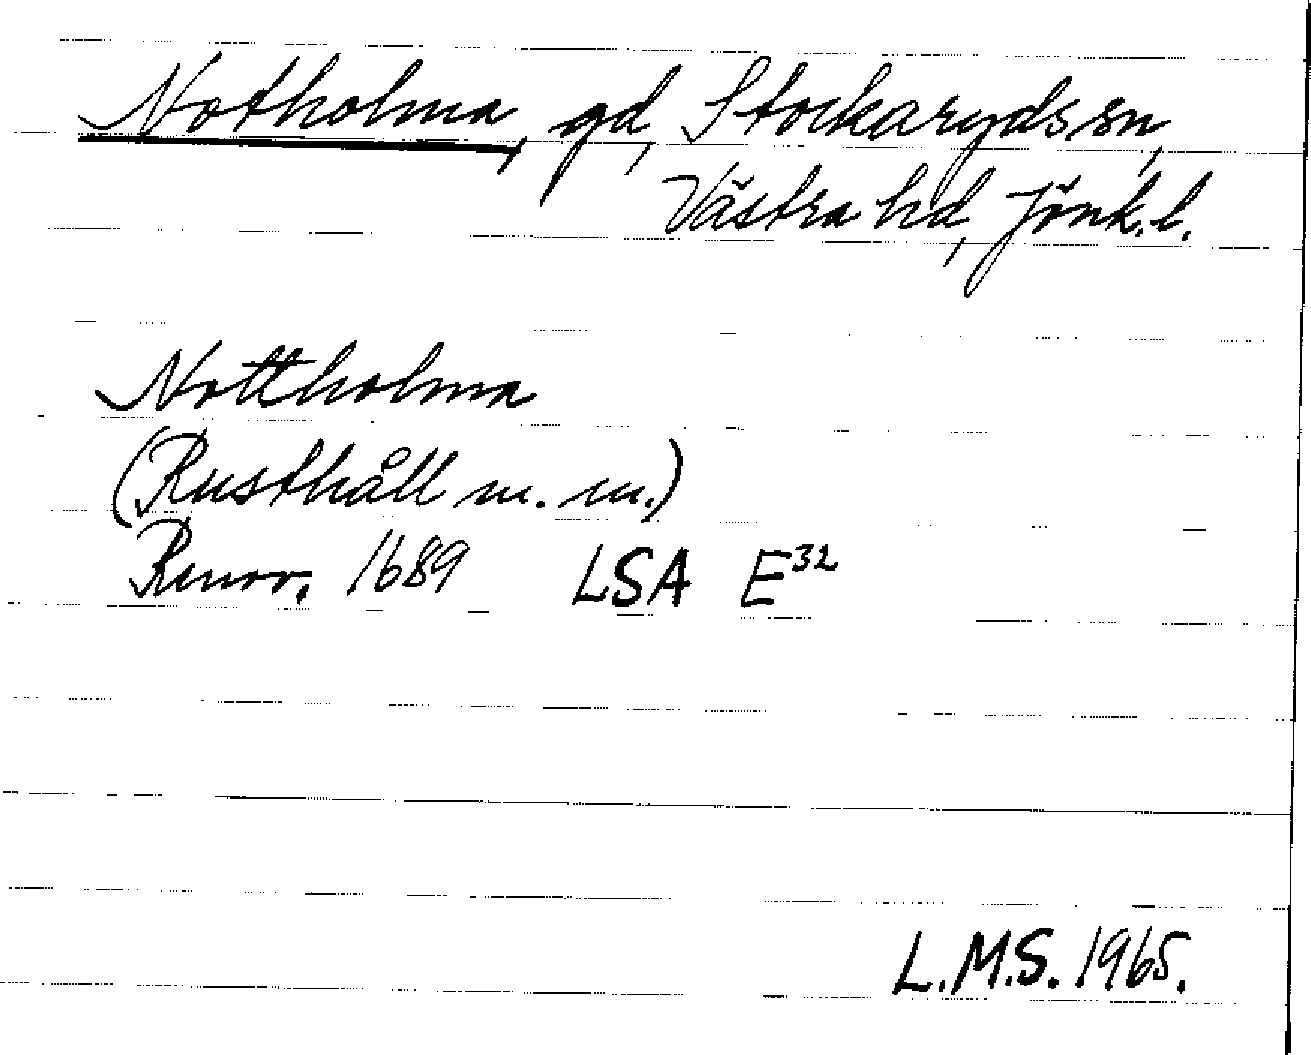 Notholma, gd, Stockaryds sn,
Västra hd, Jönk. l.
Nottholma
(Rusthåll m. m.)
Renov. 1689 LSA E³²
L.M.S. 1965.